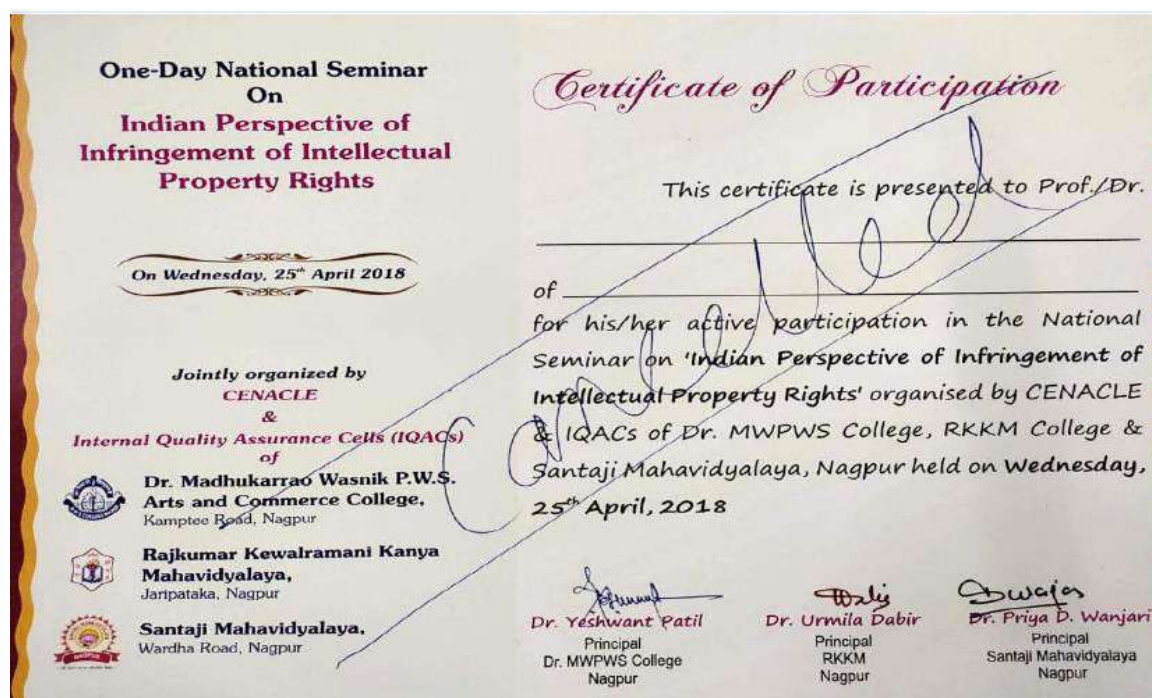 One-Day National Seminar
On
Indian Perspective of
Infringement of Intellectual
Property Rights
On Wednesday, 25th April 2018
Jointly organized by
CENACLE
&
Internal Quality Assurance Cells (IQACs)
of
Dr. Madhukarrao Wasnik P.W.S.
Arts and Commerce College,
Kamptee Road, Nagpur
Rajkumar Kewalramani Kanya
Mahavidyalaya,
Jaripataka, Nagpur
Santaji Mahavidyalaya,
Wardha Road, Nagpur
Certificate of Participation
This certificate is presented to Prof./Dr.
of
for his/her active participation in the National
Seminar on 'Indian Perspective of Infringement of
Intellectual Property Rights' organised by CENACLE
& IQACs of Dr. MWPWS College, RKKM College &
Santaji Mahavidyalaya, Nagpur held on Wednesday,
25th April, 2018
Cancelled
Dr. Yeshwant Patil
Principal
Dr. MWPWS College
Nagpur
Dr. Urmila Dabir
Principal
RKKM
Nagpur
Dr. Priya D. Wanjari
Principal
Santaji Mahavidyalaya
Nagpur